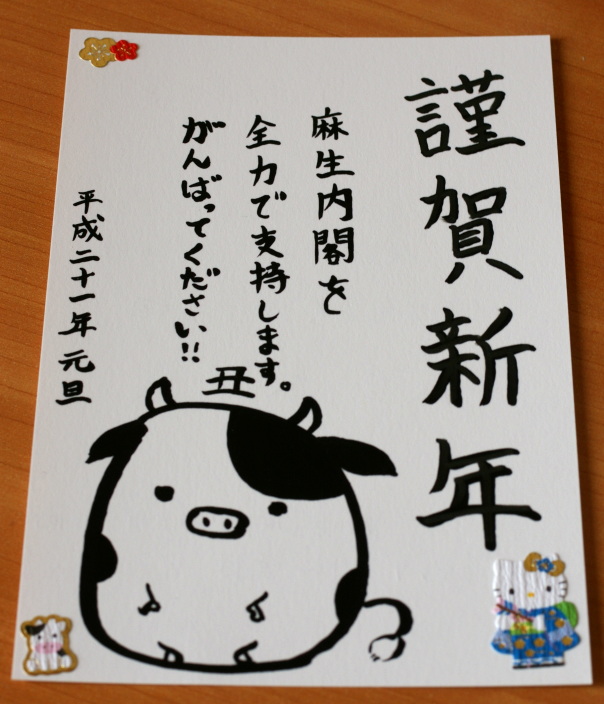 謹賀新年
麻生内閣を
全力で支持します。
がんばってください!!
平成二十一年 元旦
丑